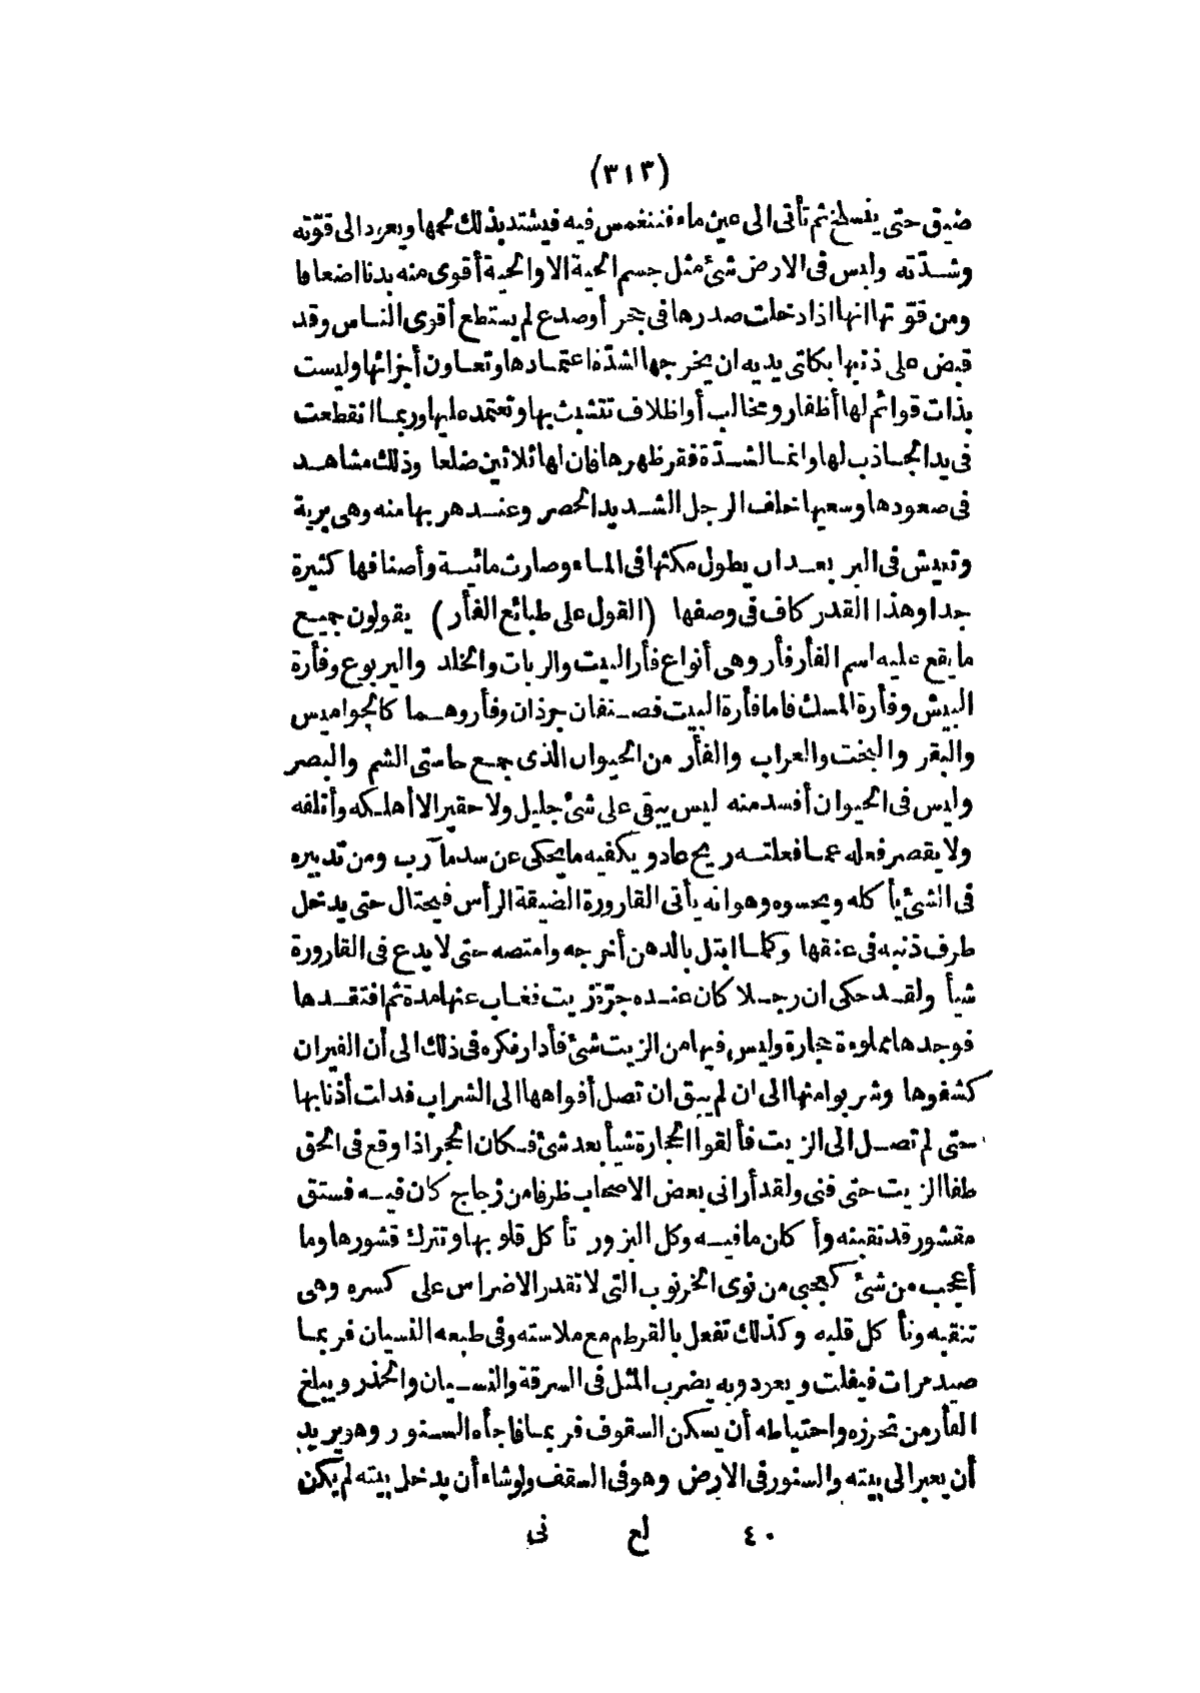 (٣١٣)
ضيق حتى ينسلخ ثم تأتى الى عين ماء فتنغمس فيه فيشتد بذلك لحمها ويعود الى قوّته
وشدّته وليس فى الارض شئ مثل جسم الحية الا والحية أقوى منه بدنا اضعافا
ومن قوّتها انها اذا دخلت صدرها فى جحر أو صدع لم يستطع أقوى الناس وقد
قبض على ذنبها بكلتى يديه ان يخرجها لشدّة اعتمادها وتعاون أجزائها وليست
بذات قوائم لها أظفار ومخالب أو اظلاف تتشبث بها وتعتمد عليها وربما انقطعت
فى يد الجاذب لها وانما لشدّة فقر ظهرها فان لها ثلاثين ضلعا وذلك مشاهد
فى صعودها وسعيها خلف الرجل الشديد الحصر وعند هربها منه وهى برية
وتعيش فى البر بعد ان يطول مكثها فى الماء وصارت مائية وأصنافها كثيرة
جدا وهذا القدر كاف فى وصفها (القول على طبائع الفأر) يقولون جميع
ما يقع عليه اسم الفأر فأر وهى أنواع فأر البيت والربات والخلد واليربوع وفأرة
البيش وفأرة المسك فاما فأرة البيت فصنفان جرذان وفأر وهما كالجواميس
والبقر والبخت والعراب والفأر من الحيوان الذى جمع حاستى الشم والبصر
وليس فى الحيوان أفسد منه ليس يبقى على شئ جليل ولا حقير الا أهلكه وأتلفه
ولا يقصر فعله عما فعلته ريح عاد ويكفيه ما يحكى عن سد مآرب ومن تدبيره
فى الشئ يأكله ويحسوه وهو انه يأتى القارورة الضيقة الرأس فيحتال حتى يدخل
طرف ذنبه فى عنقها وكلما ابتل بالدهن أخرجه وامتصه حتى لا يدع فى القارورة
شيأ ولقد حكى ان رجلا كان عنده جرّة زيت فغاب عنها مدة ثم افتقدها
فوجدها مملوءة حجارة وليس فيها من الزيت شئ فأدار فكره فى ذلك الى أن الفيران
كشفوها وشربوا منها الى ان لم يبق ان تصل أفواهها الى الشراب فدلت أذنابها
حتى لم تصل الى الزيت فألقوا الحجارة شيأ بعد شئ فكان الحجر اذا وقع فى الحق
طفا الزيت حتى فنى ولقد أرانى بعض الاصحاب ظرفا من زجاج كان فيه فستق
مقشور قد نقبته وأكلن ما فيه وكل البزور تأكل قلوبها وتترك قشورها وما
أعجب من شئ كعجبى من نوى الخرنوب التى لا تقدر الاضراس على كسره وهى
تنقبه وتأكل قلبه وكذلك تفعل بالقرطم مع ملاسته وفى طبعه النسيان فربما
صيد مرات فيفلت ويعود وبه يضرب المثل فى السرقة والنسيان والحذر ويبلغ
الفأر من تحرزه واحتياطه أن يسكن السقوف فربما فاجأه السنور وهو يريد
أن يعبر الى بيته والسنور فى الارض وهو فى السقف ولو شاء أن يدخل بيته لم يكن
٤٠ لع نى